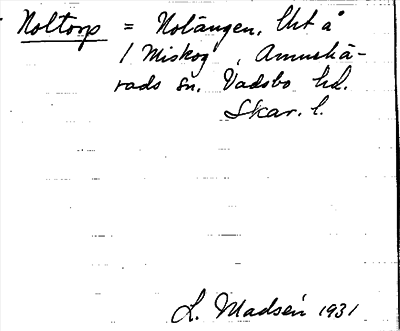 Noltorp = Notängen, Utt å
1 Miskog, Amnehä-
rads sn. Vadsbo hd.
Skar. l.
L. Madsén 1931